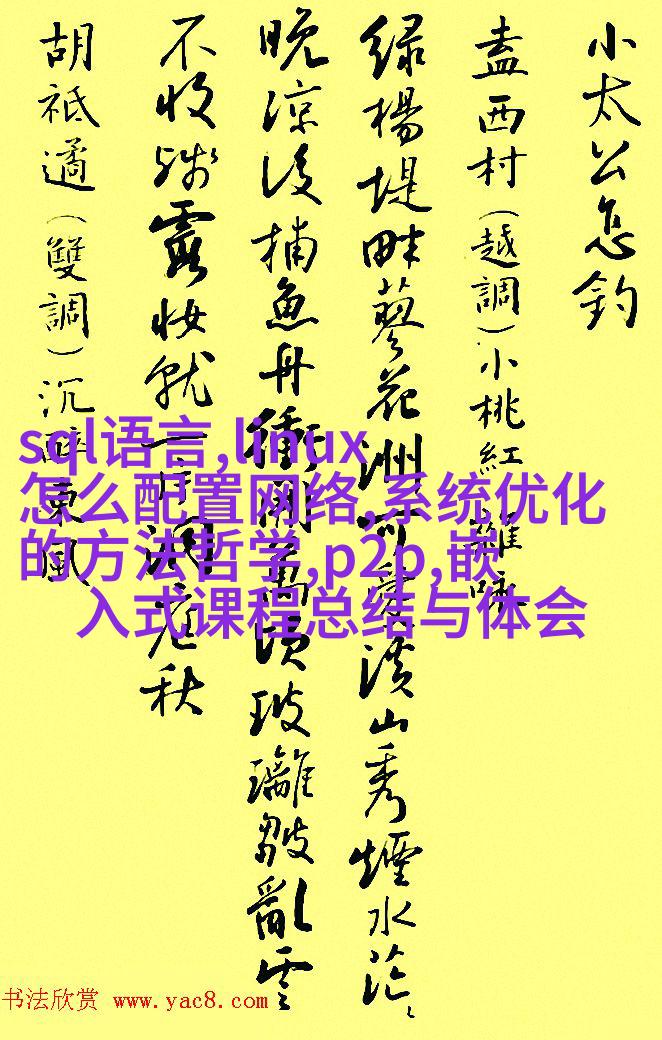 小太公怎钓
盍西村(越調)小桃紅雜咏
绿楊堤畔蓼花洲可愛溪山秀煙水茫、
晚凉後捕魚舟衝開萬頃玻璃皱亂雲
不收残霞妝就一片洞庭秋
胡祗遹(雙調)沉醉東風
sql语言,linux
怎么配置网络,系统优化
的方法哲学,p2p,嵌
入式课程总结与体会
书法欣赏 www.yac8.com